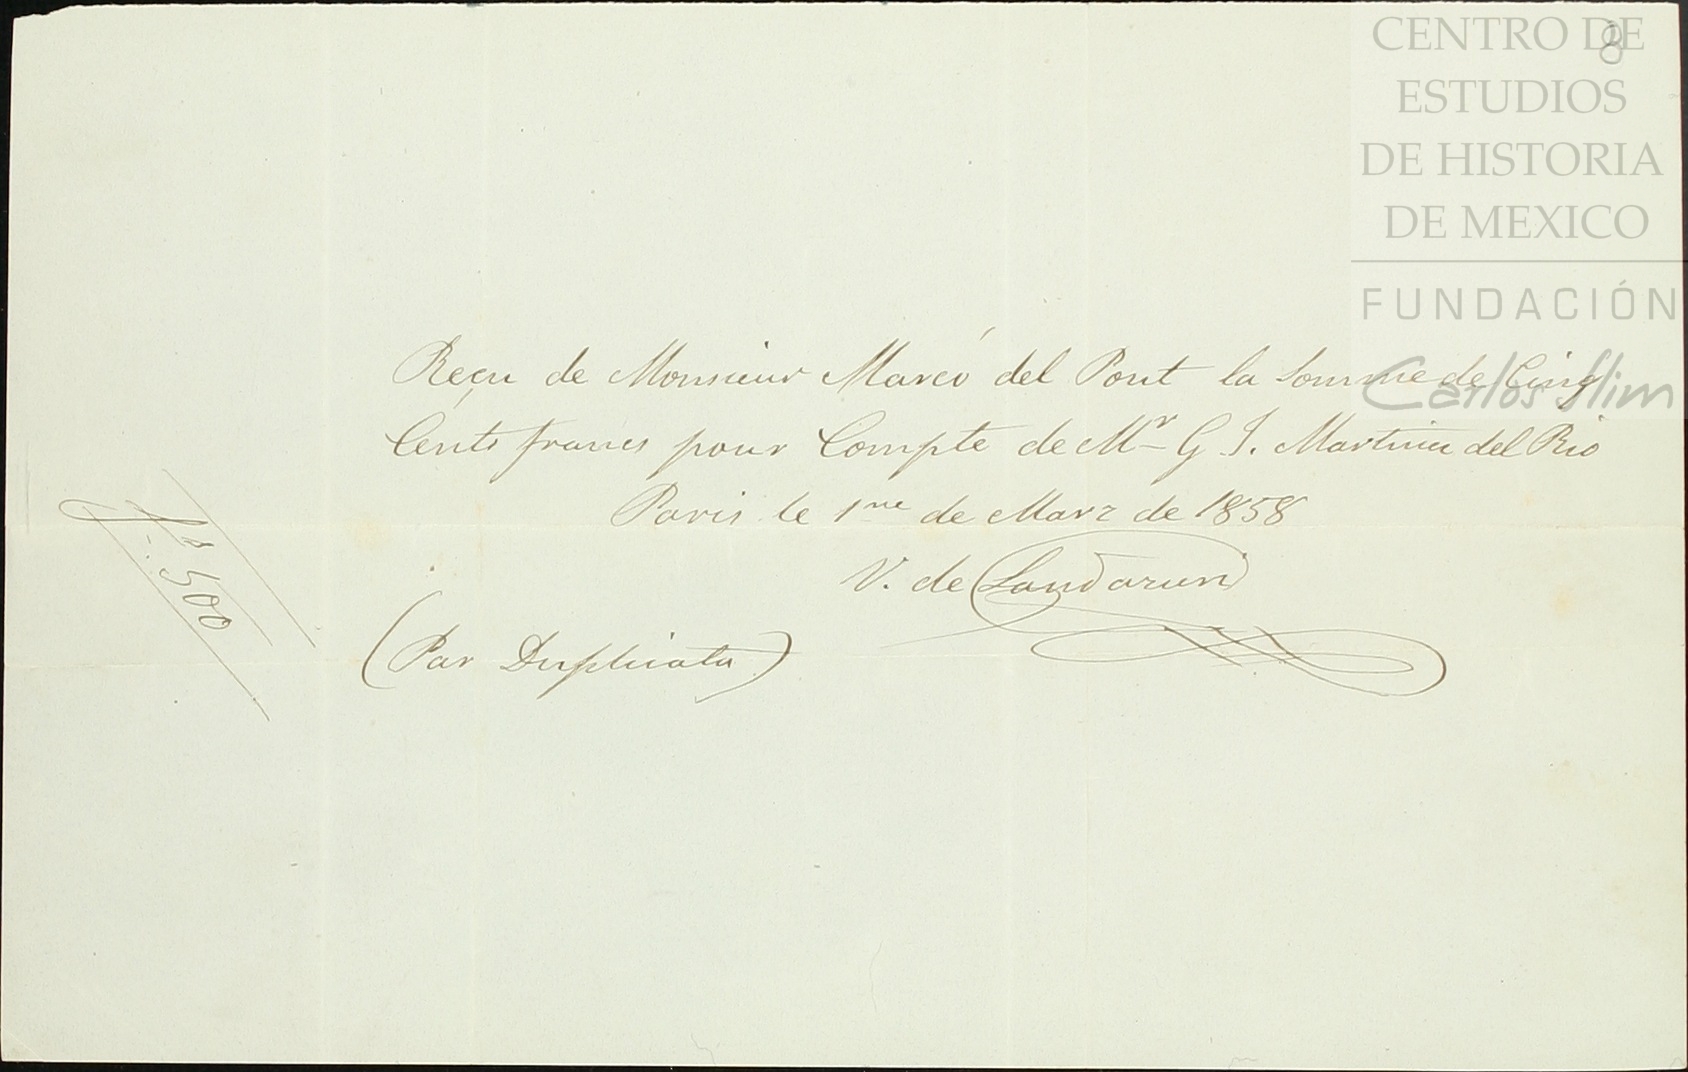 8
CENTRO DE
ESTUDIOS
DE HISTORIA
DE MEXICO
FUNDACIÓN
Carlos Slim
Reçu de Monsieur Marcó del Pont la Somme de Cinq
Cents francs pour Compte de Mr G J. Martinez del Rio
Paris le 1re de Marz de 1858
V. de Landaruri
(Par Duplicata)
fs. 500